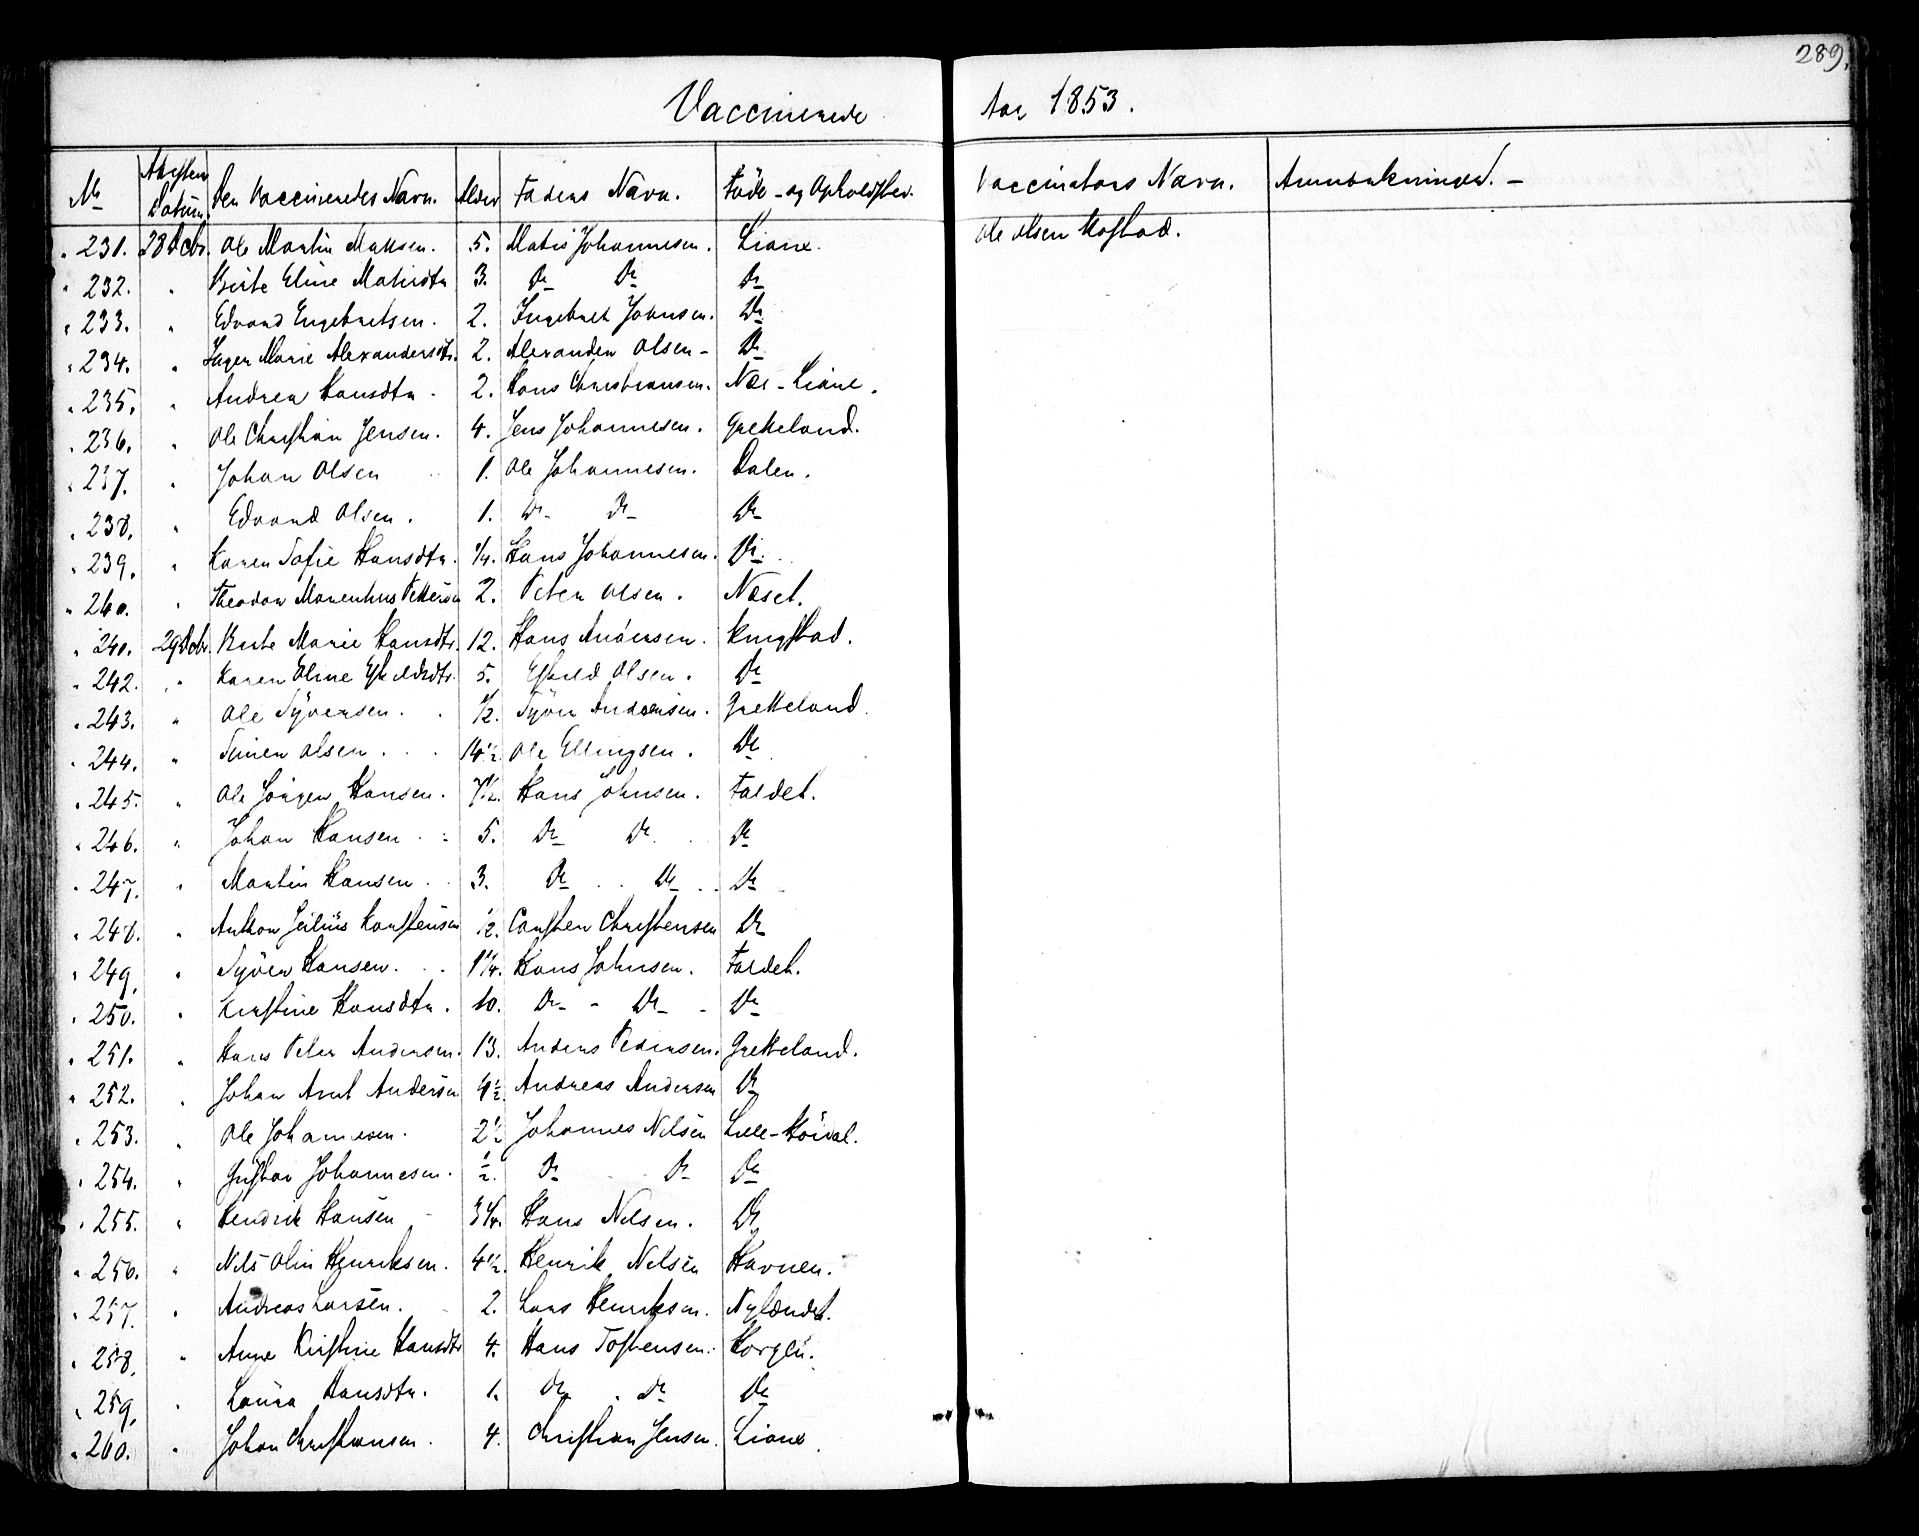 289.
Vaccinerede Aar 1853.
No Attestens Datum. Den Vaccineredes Navn. Alder Faders Navn. Føde- og Opholdsted. Vaccinators Navn. Anmærkninger. –
" 231. 28 Dcbr. Ole Martin Matisen. 5. Matis Johannesen. Liane. Ole Olsen Kostad.
" 232. " Birte Eline Matisdtr 3. Do Do Do
" 233. " Edvard Engebretsen. 2. Ingebret Johnsen. Do
" 234. " Inger Marie Alexandersdtr. 2. Alexander Olsen - Do
" 235. " Andrea Hansdtr. 2. Hans Christiansen. Nær-Liane.
" 236. " Ole Christian Jensen. 4. Jens Johannesen. Grekeland.
" 237. " Johan Olsen 1. Ole Johannesen. Dalen.
" 238. " Edvard Olsen. 1. Do Do Do
" 239. " Karen Sofie Hansdtr. 1/4. Hans Johannesen. Do
" 240. " Theodor Marenhius Pettersen 2. Peter Olsen. Næset.
" 240. 29 Dcbr Birte Marie Hansdtr. 12. Hans Andersen. Ringstad.
" 242. " Karen Oline Eskeldsdtr. 5. Eskeld Olsen. Do
" 243. " Ole Syversen. 1/2. Syver Andersen. Grekeland.
" 244. " Simen Olsen. 14 1/2. Ole Ellingsen. Do
" 245. " Ole Jørgen Hansen. 7 1/2. Hans Johnsen. Faldet.
" 246. " Johan Hansen. 5. Do Do. Do
" 247. " Martin Hansen. 3. Do Do Do
" 248. " Anthon Julius Karstensen 1/2. Carsten Christensen Do
" 249. " Syver Hansen. 1 1/4. Hans Johnsen. Faldet.
" 250. " Kirstine Hansdtr. 10. Do - Do - Do
" 251. " Hans Peter Andersen. 13. Anders Pedersen. Grekeland.
" 252. " Johan Arnt Andersen 4 1/2. Andreas Andersen Do
" 253. " Ole Johannesen. 2 1/2 Johannes Nilsen Lille-Høival.
" 254. " Gustav Johannesen. 1/2. Do Do Do
" 255. " Hendrik Hansen 3 1/4. Hans Nilsen. Do
" 256. " Nils Olin Henriksen. 4 1/2. Henrik Nilsen Havnen.
" 257. " Andreas Larsen. 2. Lars Henriksen. Nylændet.
" 258. " Anne Kirstine Hansdtr 4. Hans Tostensen. Korgen.
" 259. " Laura Hansdtr. 1. Do " Do Do
" 260. " Johan Christiansen. 4. Christian Jensen. Liane.